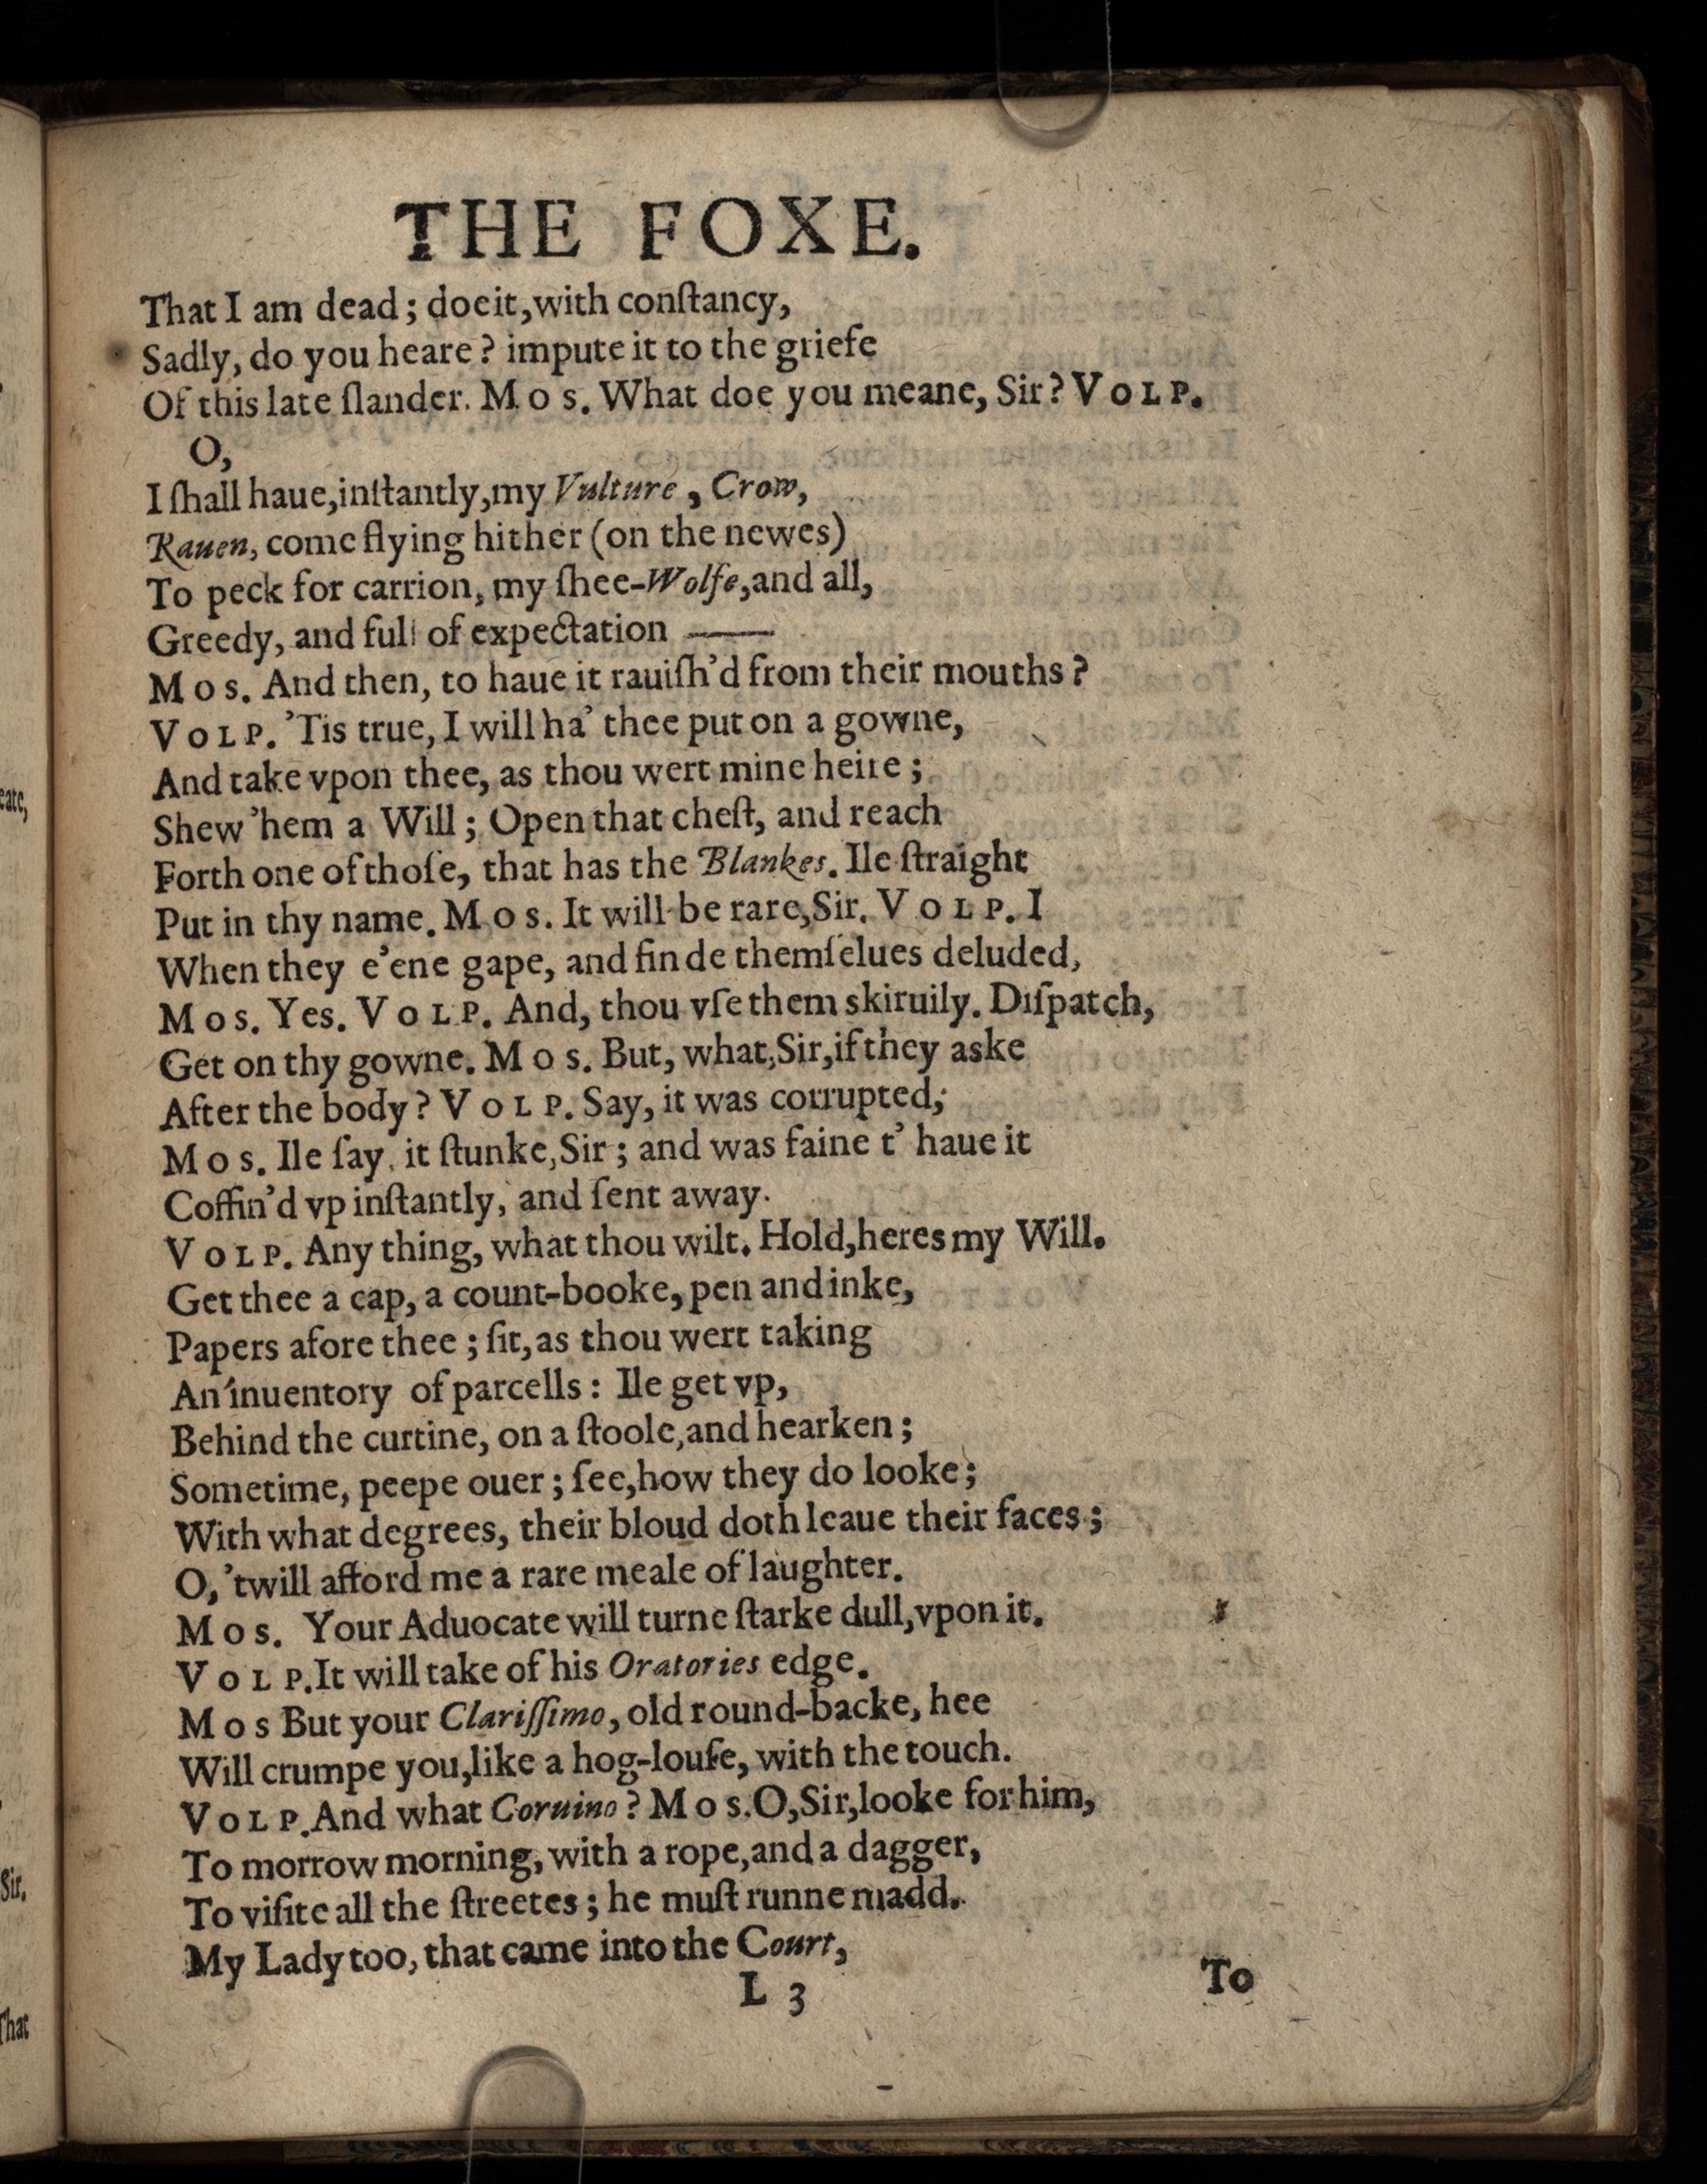 THE FOXE.
That I am dead; doe it, with conſtancy,
Sadly, do you heare? impute it to the griefe
Of this late ſlander. Mos. What doe you meane, Sir? VOLP.
O,
I ſhall haue, inſtantly, my Vulture, Crow,
Rauen, come flying hither (on the newes)
To peck for carrion, my ſhee-Wolfe, and all,
Greedy, and full of expectation ——
Mos. And then, to haue it rauiſh'd from their mouths?
VOLP. 'Tis true, I will ha' thee put on a gowne,
And take vpon thee, as thou wert mine heire;
Shew 'hem a Will; Open that cheſt, and reach
Forth one of thoſe, that has the Blankes. Ile ſtraight
Put in thy name. Mos. It will be rare, Sir. VOLP. I
When they e'ene gape, and finde themſelues deluded,
Mos. Yes. VOLP. And, thou vſe them skiruily. Diſpatch,
Get on thy gowne. Mos. But, what, Sir, if they aske
After the body? VOLP. Say, it was corrupted;
Mos. Ile ſay, it ſtunke, Sir; and was faine t' haue it
Coffin'd vp inſtantly, and ſent away.
VOLP. Any thing, what thou wilt. Hold, heres my Will.
Get thee a cap, a count-booke, pen and inke,
Papers afore thee; ſit, as thou wert taking
An inuentory of parcells: Ile get vp,
Behind the curtine, on a ſtoole, and hearken;
Sometime, peepe ouer; ſee, how they do looke;
With what degrees, their bloud doth leaue their faces;
O, 'twill afford me a rare meale of laughter.
Mos. Your Aduocate will turne ſtarke dull, vpon it.
VOLP. It will take of his Oratories edge.
Mos But your Clariſſimo, old round-backe, hee
Will crumpe you, like a hog-louſe, with the touch.
VOLP. And what Coruino? Mos. O, Sir, looke for him,
To morrow morning, with a rope, and a dagger,
To viſite all the ſtreetes; he muſt runne madd.
My Lady too, that came into the Court,
L 3
To
Sir,
That